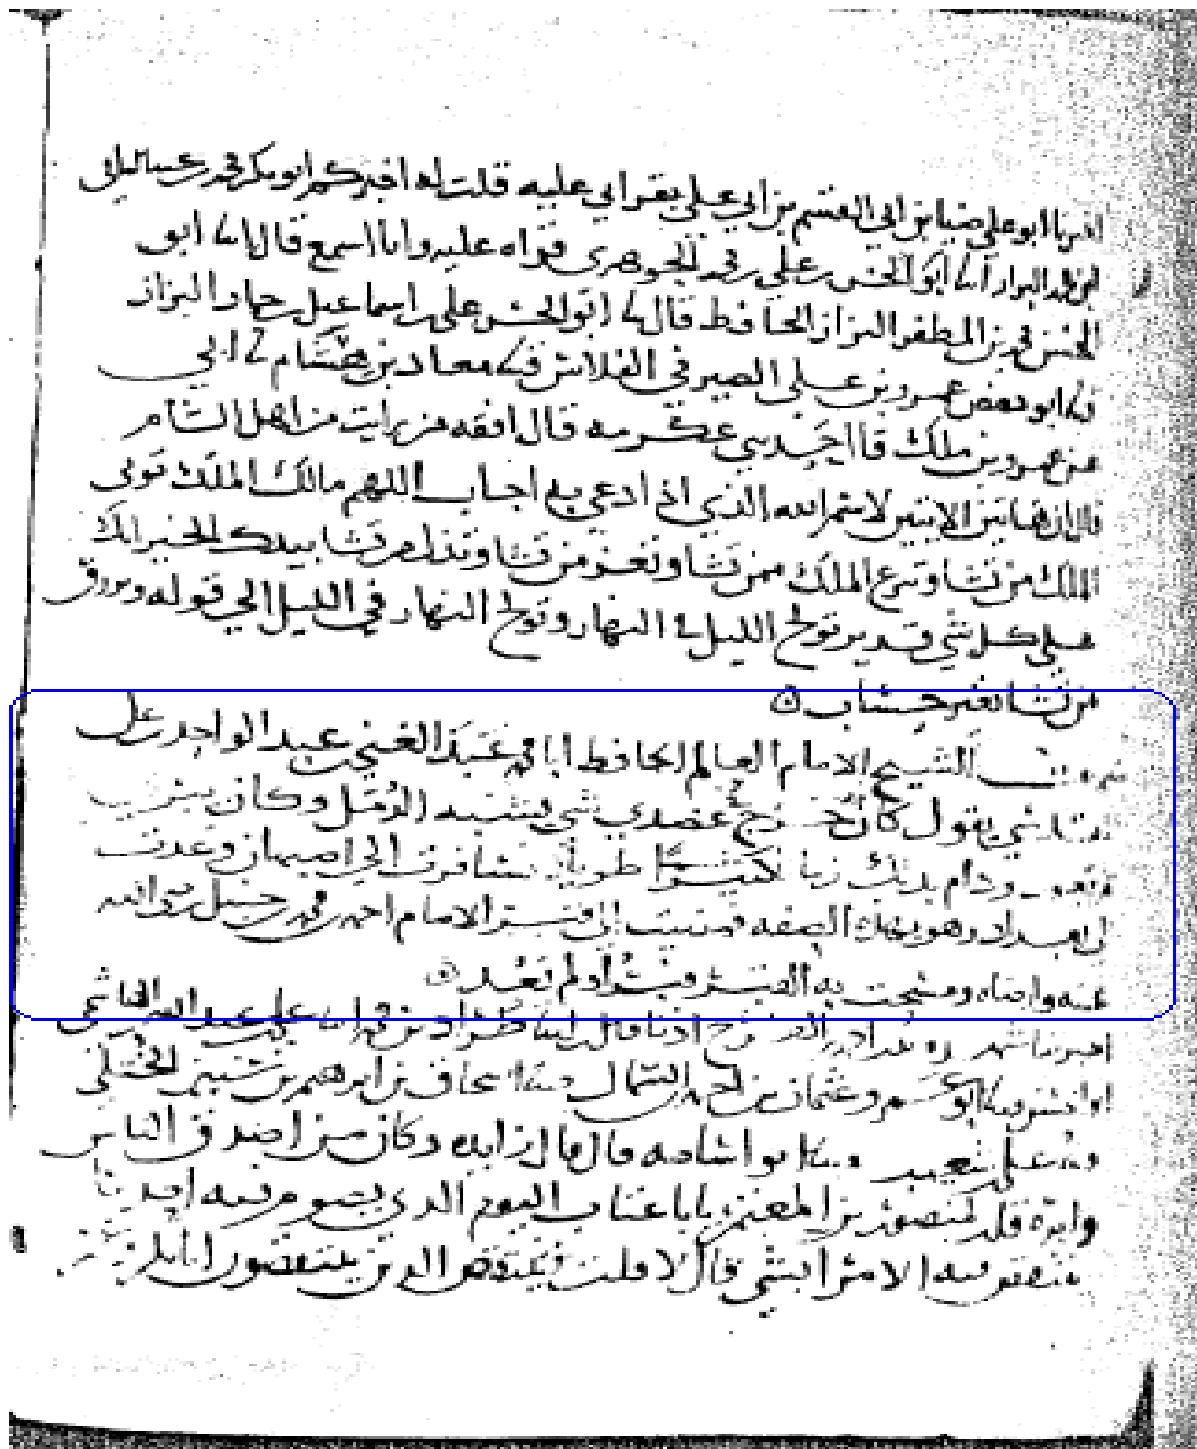 اخبرنا ابو علي ضيا بن ابي القسم بن ابي علي بقراتي عليه قلت له اخبركم ابو بكر محمد بن عبد الباقي
البزار ابنا ابو الحسن علي بن محمد الجوهري قراه عليه وانا اسمع قال ابنا ابو
الحسن محمد بن المظفر البزاز الحافظ قال ابو الحسن علي بن اسماعيل بن حماد البزاز
ابو حفص عمرو بن علي الصيرفي الفلاس معاذ بن هشام ابي
عن عمرو بن ملك قال حدثني عكرمه قال افقه من رايت من اهل الشام
قال ان هاتين الايتين لاسم الله الذي اذا دعي به اجاب اللهم مالك الملك توتي
الملك من تشا وتنزع الملك ممن تشا وتعز من تشا وتذل من تشا بيدك الخير انك
على كل شي قدير تولج الليل في النهار وتولج النهار في الليل الى قوله وترزق
من تشا بغير حساب
سمعت الشيخ الامام العالم الحافظ ابا محمد عبد الغني بن عبد الواحد بن علي
المقدسي يقول كان خرج في عضدي شي يشبه الدمل وكان
ودام بذلك زمانا طويلا فسافرت الى اصبهان وعدت
الى بغداد وهو بهذه الصفه فمضيت الى قبر الامام احمد بن محمد بن حنبل رضي الله
عنه وارضاه ومسحت به القبر فبرا ولم يعد
اخبرنا اذنا قال ابنا طراد بن محمد ابنا علي بن عبد الله الهاشمي
ابو عمرو عثمان بن احمد السماك اسحاق بن ابرهيم بن الختلي
علي بن سعيد ابو اسامه قال قال زايده وكان من اصدق الناس
قلت لمنصور بن المعتمر يابا عتاب اليوم الذي يصوم فيه احدنا
ينتقص فيه الامرا بشي قال لا قلت فينتقص الذين ينتقصون ابا بكر